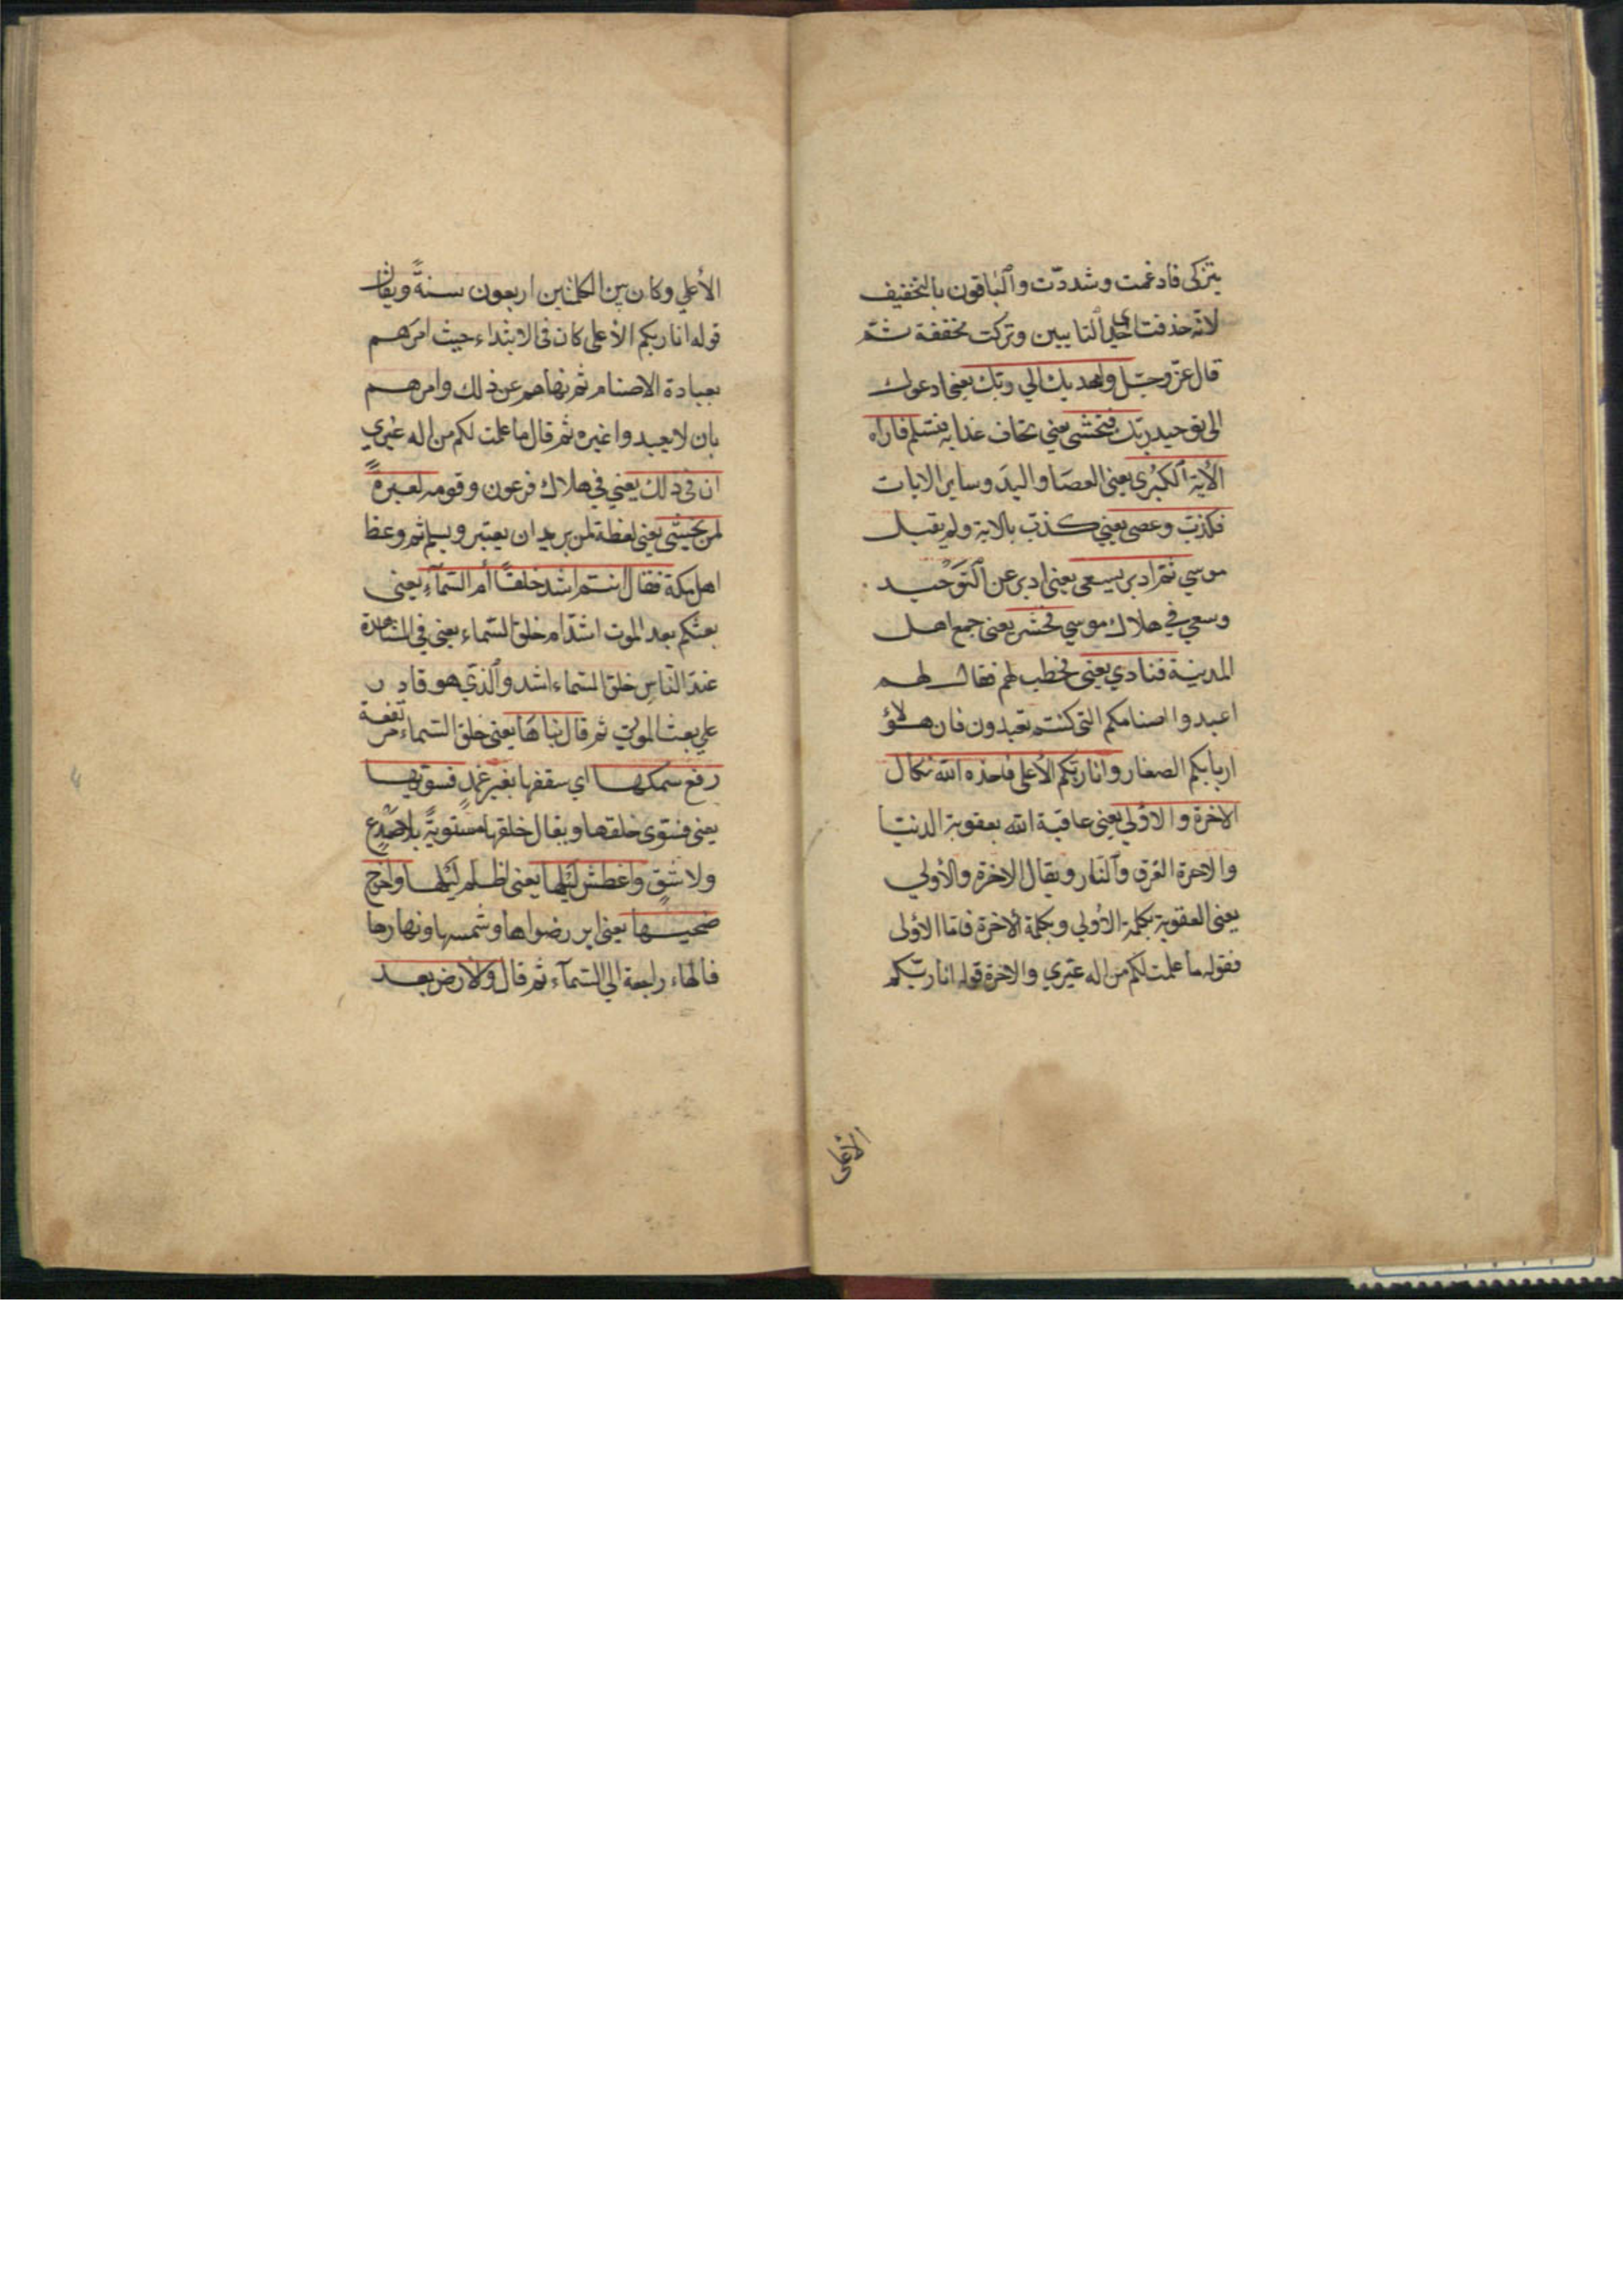 يتزكى فادغمت وشددّت والباقون بالتخفيف
لانّه حذفت احدى التايين وتركت مخففة ثم
قال عزّ وجلّ واهديك الي ربّك يعنى ادعوك
الى توحيد ربّك فتخشى يعني تخاف عذابه فتسلم فاراه
الأية الكبرى يعنى العصَا واليدَ وساير الايات
فكذبَ وعصى يعني كذبَ بالاية ولم يقبل
موسي ثم ادبر يسعى يعنى ادبر عن التوَحْيد
وسعي في هلاك موسي فحشر يعنى جمع اهل
المدينة فنادي يعنى فخطب لهم فقال لهم
اعبدوا اصنامكم التى كنتم تعبدون فان هؤلاء
اربابكم الصغار وانا ربّكم الأعلى فاخذه الله نكال
الاخرة والاوُلي يعنى عاقبة الله بعقوبة الدنيا
والاخرة الغرق والنّار ويقال الاخرة والأولي
يعنى العقوبة بكلمة الأولي وبكلمة الأخرة فامّا الأولى
فقوله ما علمت لكم من اله غيري والاخرة قوله انا ربّكم
الأعلى
الأعلي وكان بين الكلمتين اربعون سنةً ويقال
قوله انا ربكم الأعلى كان فى الابتداء حيث امرَهم
بعبادة الاصنام ثم نهاهم عن ذلك وامرهم
بان لا يعبدوا غيره ثم قال ما علمت لكم من اله غيري
ان فى ذلك يعني في هلاك فرعون وقومه لعبرةً
لمن يخشى يعنى لعظة لمن يريد ان يعتبر ويسلم ثم وعظ
اهل مكة فقال أانتم اشد خلقًا أم السّمآء يعنى
بعثكم بعد الموت اشدّ ام خلق السّماء يعنى في المشاهدة
عندَ النّاسِ خلق السّماء اشد والذي هو قادر
علي بعث الموتي ثم قال بناهَا يعنى خلق السّماء مرتفعة
رفع سَمكها اي سقفها بغير عَمدٍ فسوّيها
يعنى فسَتوى خلقها ويقال خلقها مستويةً بلا صَدْعٍ
ولا شقٍ واغطش ليْلها يعنى اظلم ليْلها واخرج
ضحيها يعنى ابرز ضوأها وشمسها ونهارها
فالهاء راجعة الي السّمآء ثم قال والأرض بعد